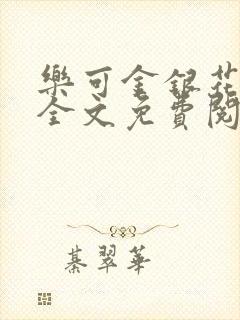 樂可金銀花
全文免費閱
綦翠華